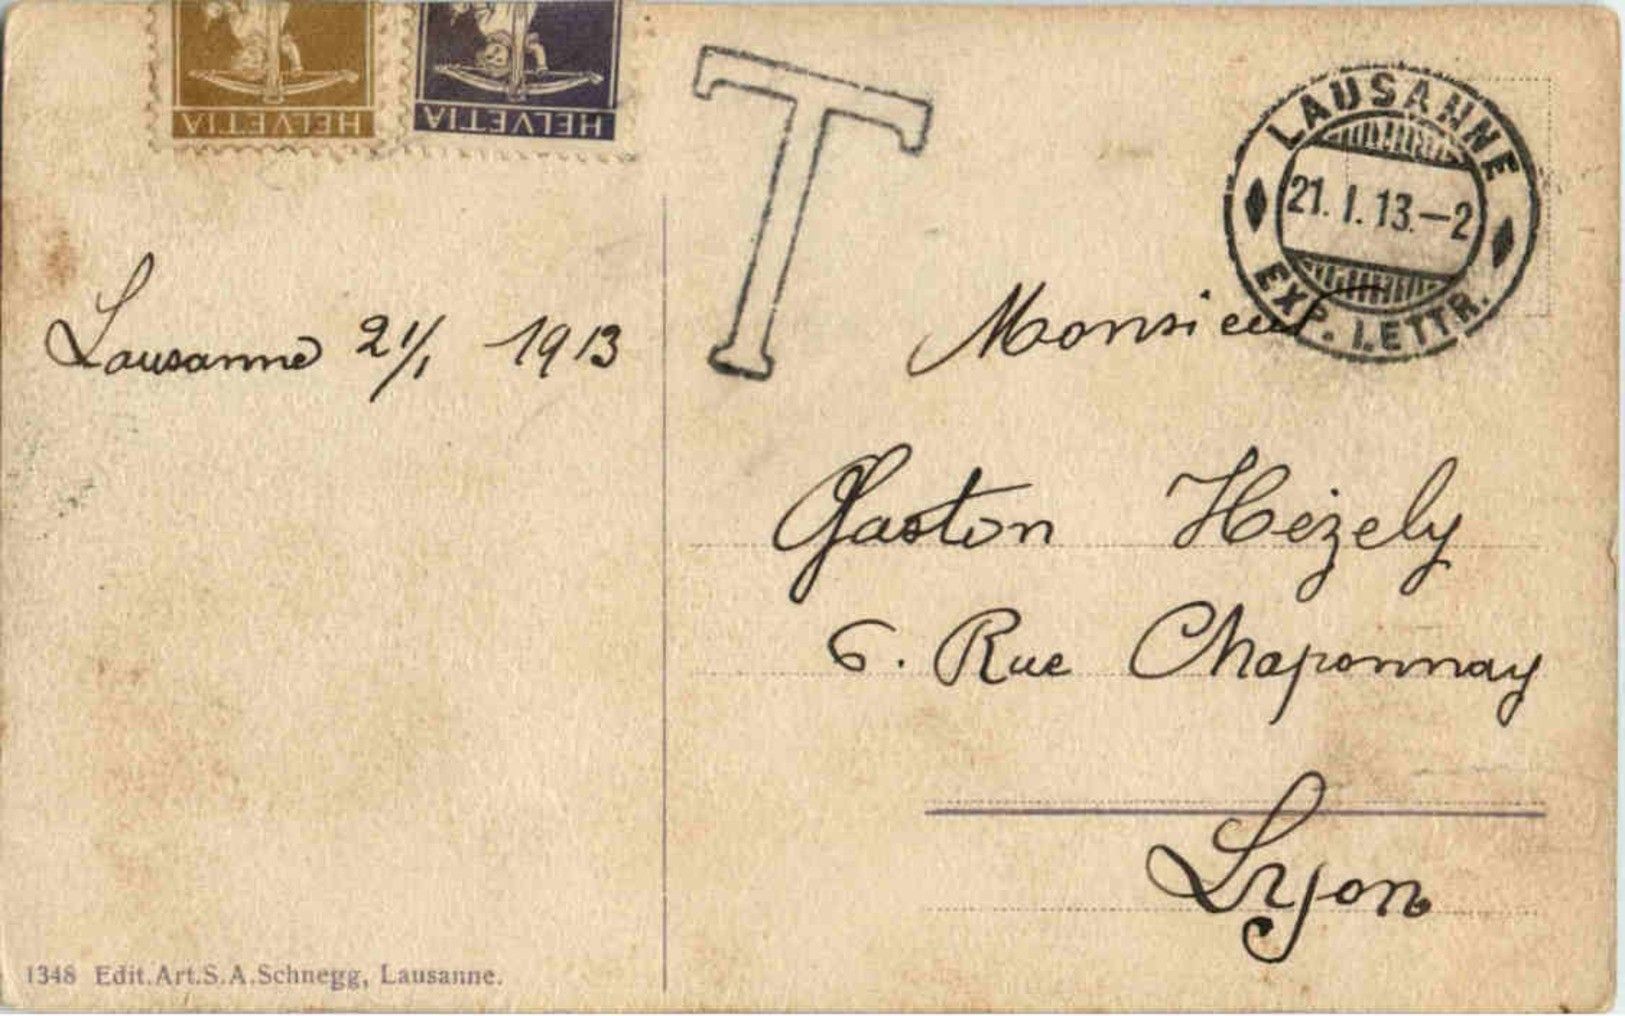 HELVETIA HELVETIA
T
LAUSANNE
21. I. 13.–2
EXP. LETTR.
Lausanne 21/1 1913
Monsieur
Gaston Hézely
6. Rue Chaponnay
Lyon
1348 Edit.Art.S.A.Schnegg, Lausanne.